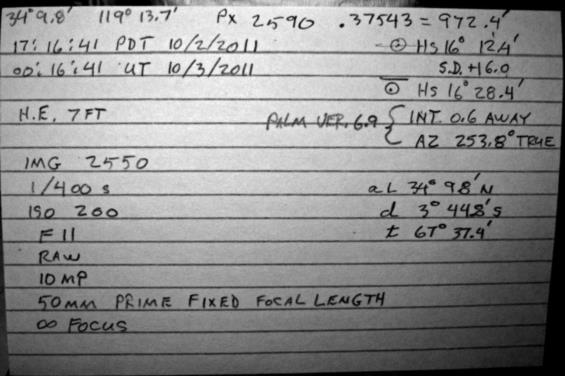 34° 9.8' 119° 13.7' PX 2590 .37543 = 972.4'
17:16:41 PDT 10/2/2011 -⊙- Hs 16° 12.4'
00:16:41 UT 10/3/2011 S.D. +16.0
⊙ Hs 16° 28.4'
H.E. 7 FT PALM VER. 6.9 { INT. 0.6 AWAY
AZ 253.8° TRUE
IMG 2550
1/400 s aL 34° 9.8' N
ISO 200 d 3° 44.8' S
F 11 t 67° 37.4'
RAW
10 MP
50MM PRIME FIXED FOCAL LENGTH
∞ FOCUS